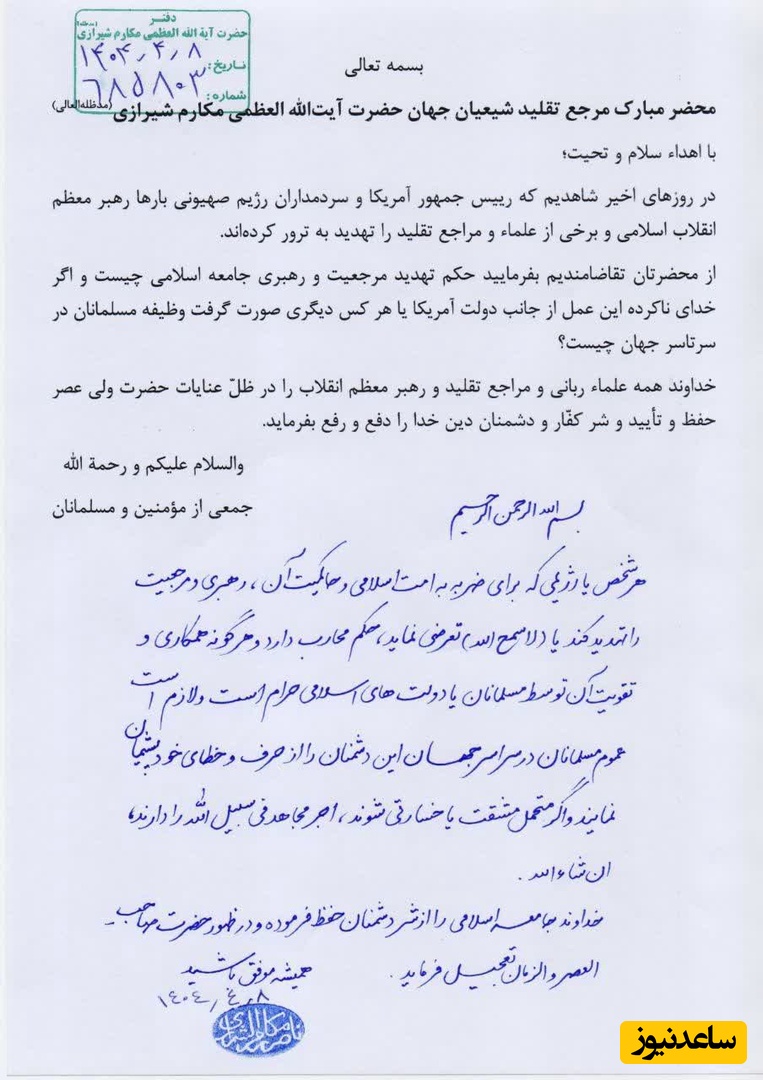 دفتر
حضرت آیة الله العظمی مکارم شیرازی
تاریخ: ۱۴۰۴٫۴٫۸
شماره: ۶۸۵۸۰۳
بسمه تعالی
محضر مبارک مرجع تقلید شیعیان جهان حضرت آیت‌الله العظمی مکارم شیرازی (مدظله‌العالی)
با اهداء سلام و تحیت؛
در روزهای اخیر شاهدیم که رییس جمهور آمریکا و سردمداران رژیم صهیونی بارها رهبر معظم
انقلاب اسلامی و برخی از علماء و مراجع تقلید را تهدید به ترور کرده‌اند.
از محضرتان تقاضامندیم بفرمایید حکم تهدید مرجعیت و رهبری جامعه اسلامی چیست و اگر
خدای ناکرده این عمل از جانب دولت آمریکا یا هر کس دیگری صورت گرفت وظیفه مسلمانان در
سرتاسر جهان چیست؟
خداوند همه علماء ربانی و مراجع تقلید و رهبر معظم انقلاب را در ظلّ عنایات حضرت ولی عصر
حفظ و تأیید و شر کفّار و دشمنان دین خدا را دفع و رفع بفرماید.
والسلام علیکم و رحمة الله
جمعی از مؤمنین و مسلمانان
بسم الله الرحمن الرحیم
هر شخص یا رژیمی که برای ضربه به امت اسلامی و حاکمیت آن، رهبری و مرجعیت
را تهدید کند یا (لا سمح الله) تعرضی نماید، حکم محارب دارد و هرگونه همکاری و
تقویت آن توسط مسلمانان یا دولت های اسلامی حرام است و لازم است
عموم مسلمانان در سراسر جهان این دشمنان را از حرف و خطای خود پشیمان
نمایند و اگر متحمل مشقت یا خسارتی شوند، اجر مجاهد فی سبیل الله را دارند،
ان شاء الله.
خداوند جامعه اسلامی را از شر دشمنان حفظ فرموده و در ظهور حضرت صاحب
العصر و الزمان تعجیل فرماید.
همیشه موفق باشید
۱۴۰۴٫۴٫۸
ساعدنیوز